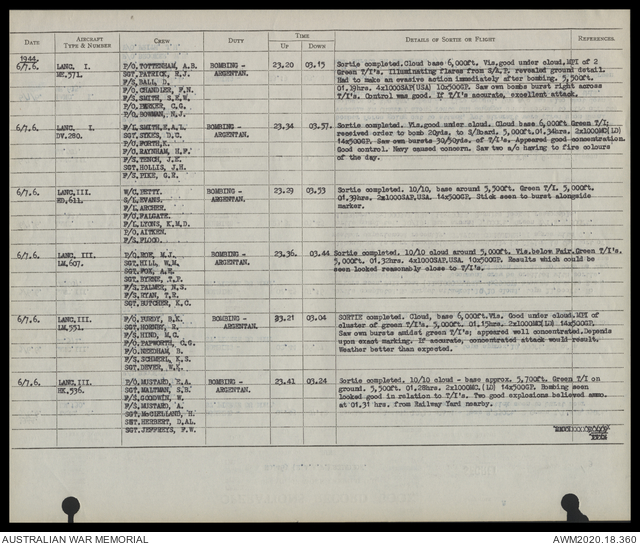 DATE
AIRCRAFT TYPE & NUMBER
CREW
DUTY
TIME
UP
DOWN
DETAILS OF SORTIE OR FLIGHT
REFERENCES.
1944.
6/7.6. LANC. I. ME.571.
P/O. TOTTENHAM, A.B.
SGT. PATRICK, R.J.
F/S. BALL, D.
F/O. CHANDLER, F.N.
F/S. SMITH, S.E.W.
P/O. C.G.
P/O. BOWMAN, N.J.
BOMBING - ARGENTAN.
23.20 03.15
Sortie completed. Cloud base 6,000ft. Vis. good under cloud. MPI of 2
Green T/I's. Illuminating flares from S/A.P. revealed ground detail.
Had to make an evasive action immediately after bombing. 5,500ft.
01.19hrs. 4x1000SAP(USA) 10x500GP. Saw own bombs burst right across
T/I's. Control was good. If T/I's accurate, excellent attack.
6/7.6. LANC. I. DV.280.
F/L. SMITH, E.A.L.
SGT. SYKES, D.C.
P/O. FORTH, K.
F/O. RAYNHAM, H.F.
F/S. TENCH, J.K.
SGT. HOLLIS, J.H.
F/S. PIKE, G.E.
BOMBING - ARGENTAN.
23.34 03.57.
Sortie completed. Vis. good under cloud. Cloud base 6,000ft Green T/I;
received order to bomb 20yds. to S/Board. 5,000ft. 01.34hrs. 2x1000MC(LD)
14x500GP. Saw own bursts 30/50yds. of T/I's. Appeared good concentration.
Good control. Navy caused concern. Saw two a/c having to fire colours
of the day.
6/7.6. LANC.III. ED.611.
W/C. BETTY.
S/L. EVANS.
F/L. ARCHER.
F/O. FALGATE.
F/L. LYONS, K.M.D.
P/O. AITKEN.
F/S. FLOOD.
BOMBING - ARGENTAN.
23.29 03.53
Sortie completed. 10/10, base around 5,500ft. Green T/I. 5,000ft.
01.39hrs. 2x1000SAP.USA. 14x500GP. Stick seen to burst alongside
marker.
6/7.6. LANC. III. LM.607.
P/O. ROE, M.J.
SGT. HILL, W.M.
SGT. FOX, A.E.
SGT. BYRNE, T.P.
F/S. PALMER, N.S.
F/S. RYAN, T.R.
SGT. BUTCHER, K.C.
BOMBING - ARGENTAN.
23.36. 03.44
Sortie completed. 10/10 cloud around 5,000ft. Vis. below Fair. Green T/I's.
5,000ft. 01.32hrs. 4x1000SAP.USA. 10x500GP. Results which could be
seen looked reasonably close to T/I's.
6/7.6. LANC.III. LM.551.
P/O. PURDY, B.K.
SGT. HORNBY, R.
F/S. HIND, M.C.
F/O. PAPWORTH, C.G.
P/O. NEEDHAM, B.
F/S. SCHMERL, K.S.
SGT. DEVER, W.K.
BOMBING - ARGENTAN.
23.21 03.04
SORTIE completed. Cloud, base 6,000ft. Vis. Good under cloud. MPI of
cluster of green T/I's. 5,000ft. 01.15hrs. 2x1000MC(LD) 14x500GP.
Saw own bursts amidst green T/I's; appeared well concentrated. Depends
upon exact marking. If accurate, concentrated attack would result.
Weather better than expected.
6/7.6. LANC.III. HK.536.
P/O. MUSTARD, E.A.
SGT. MALTMAN, S.B.
F/S. GOODWIN, W.
F/S. MUSTARD, A.
SGT. McCLELLAND, H.
SGT. HERBERT, D.AL.
SGT. JEFFREYS, F.W.
BOMBING - ARGENTAN.
23.41 03.24
Sortie completed. 10/10 cloud - base approx. 5,700ft. Green T/I on
ground. 5,500ft. 01.28hrs. 2x1000MC.(LD) 14x500GP. Bombing seen
looked good in relation to T/I's. Two good explosions believed ammo.
at 01.31 hrs. from Railway Yard nearby.
AUSTRALIAN WAR MEMORIAL
AWM2020.18.360